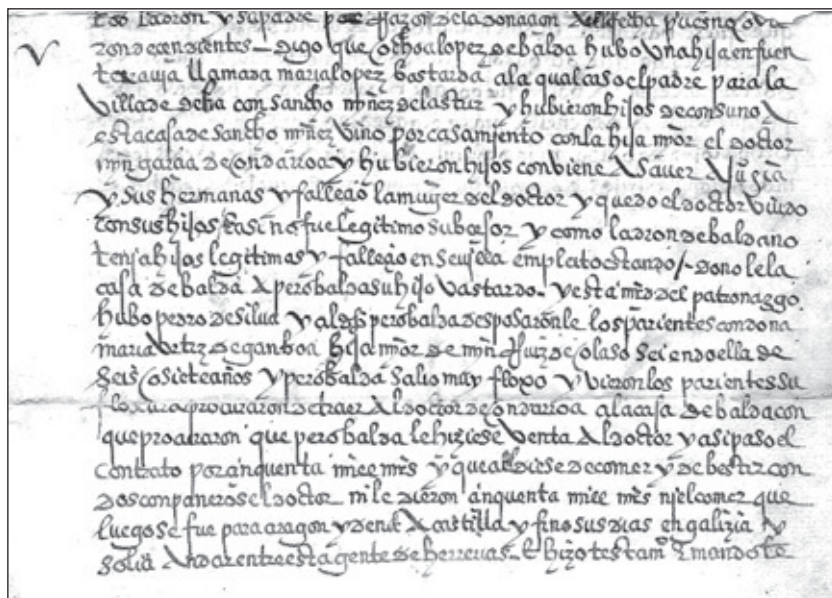 ladron y su padre por Razon de la donaçon
zon decendientes - digo que ochoa lopez de balda hubo vna hija en fuen
terauia llamada maria lopez bastarda a la qual caso el padre para la
villa de deba con sancho mrñez de lastur y hubieron hijos de consuno
esta casa de sancho mrñez vino por casamiento con la hija mor el doctor
mrn garcia de ondarroa y hubieron hijos conbiene A sauer A
y sus hermanas y falleçio la muger del doctor y quedo el doctor viudo
con sus hijos E asi no fue legitimo subcesor y como ladron de balda no
tenja hijos legitimas y falleçio en seujlla emplato estando / dono le la
casa de balda A pero balda su hijo vastardo - y esta mrd del patronazgo
hubo pedro de silud y al dho pero balda desposaronle los parientes con dona
maria vrtiz de ganboa hija mor de mrn Ruiz de olaso seiendo ella de
seis o siete años y pero balda salio muy floxo y vieron los parientes su
floxura procuraron de traer Al doctor de ondarroa a la casa de balda con
que procuraron que pero balda le hiziese venta Al doctor y asi paso el
contrato por çinquenta mill mrs y que le diese de comer y de bestir con
dos conpaneros el doctor nj le dieron çinquenta mill mrs nj el comer que
luego se fue para aragon y dende A castilla y fino sus dias en galizia y
solia Andar entre esta gente de herrerias - E hizo testamo E mandole